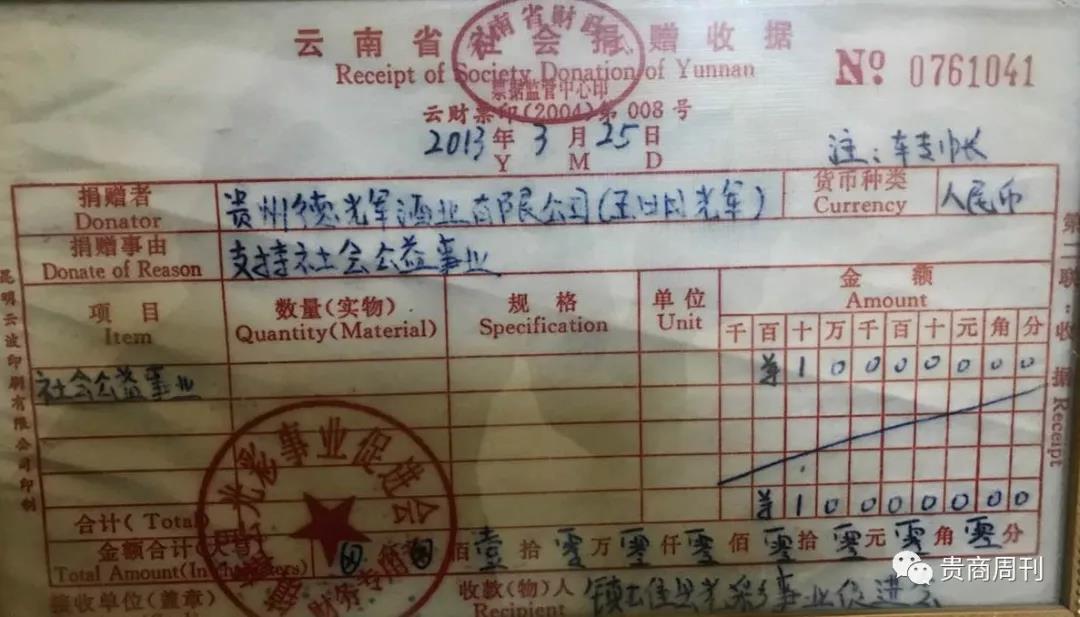 云南省社会捐赠收据
Receipt of Society Donation of Yunnan
云南省财政
票据监管中心印
云财票印(2004)第008号
№ 0761041
2013年3月25日
Y M D
注:车支巾长
捐赠者
Donator
贵州德光军酒业有限公司(王 光军)
货币种类
Currency
人民币
捐赠事由
Donate of Reason
支持社会公益事业
项目
Item
数量(实物)
Quantity(Material)
规格
Specification
单位
Unit
金额
Amount
千 百 十 万 千 百 十 元 角 分
社会公益事业
¥ 1 0 0 0 0 0 0 0
合计(Total)
¥ 1 0 0 0 0 0 0 0
金额合计(大写)
Total Amount(In characters)
佰 壹 拾 零 万 零 仟 零 佰 零 拾 零 元 零 角 零 分
接收单位(盖章)
收款(物)人
Recipient
镇雄县光彩事业促进会
县光彩事业促进会
财务专用章
第二联:收据 Receipt
昆明云波印刷有限公司印制
贵商周刊